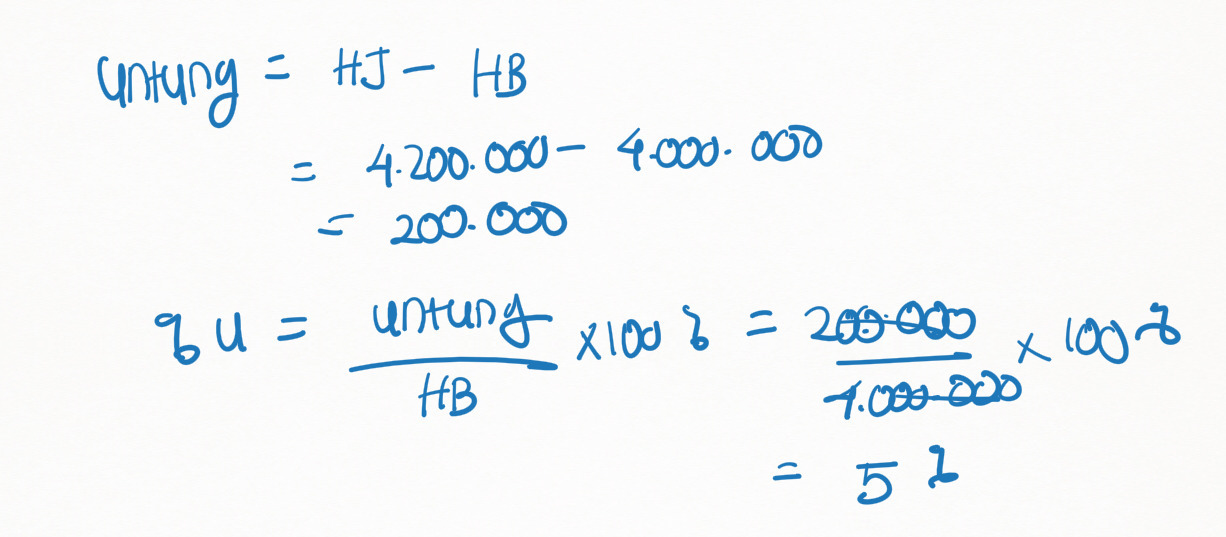 untung = HJ - HB
= 4.200.000 - 4.000.000
= 200.000
% U = untung / HB x 100 % = 200.000 / 4.000.000 x 100 %
= 5 %